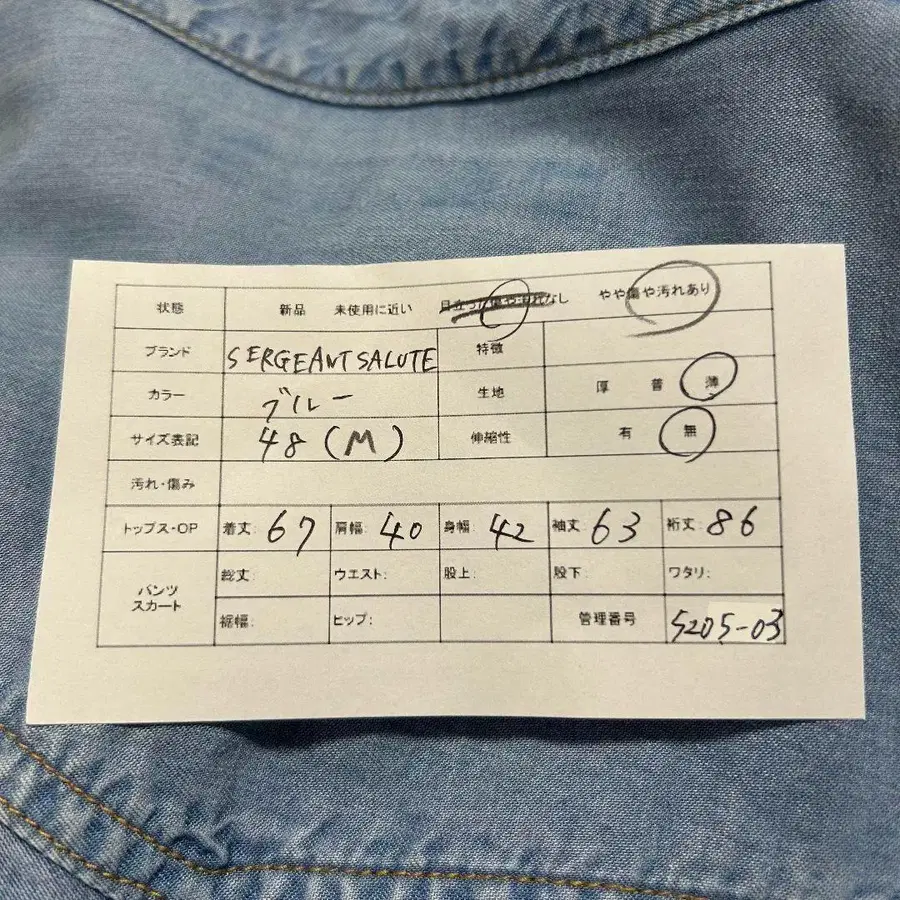 状態 新品 未使用に近い 目立った傷や汚れなし やや傷や汚れあり
ブランド SERGEANTSALUTE 特徴
カラー ブルー 生地 厚 普 薄
サイズ表記 48(M) 伸縮性 有 無
汚れ・傷み
トップス・OP 着丈: 67 肩幅: 40 身幅: 42 袖丈: 63 裄丈: 86
パンツ スカート 総丈: ウエスト: 股上: 股下: ワタリ:
裾幅: ヒップ: 管理番号 5205-03